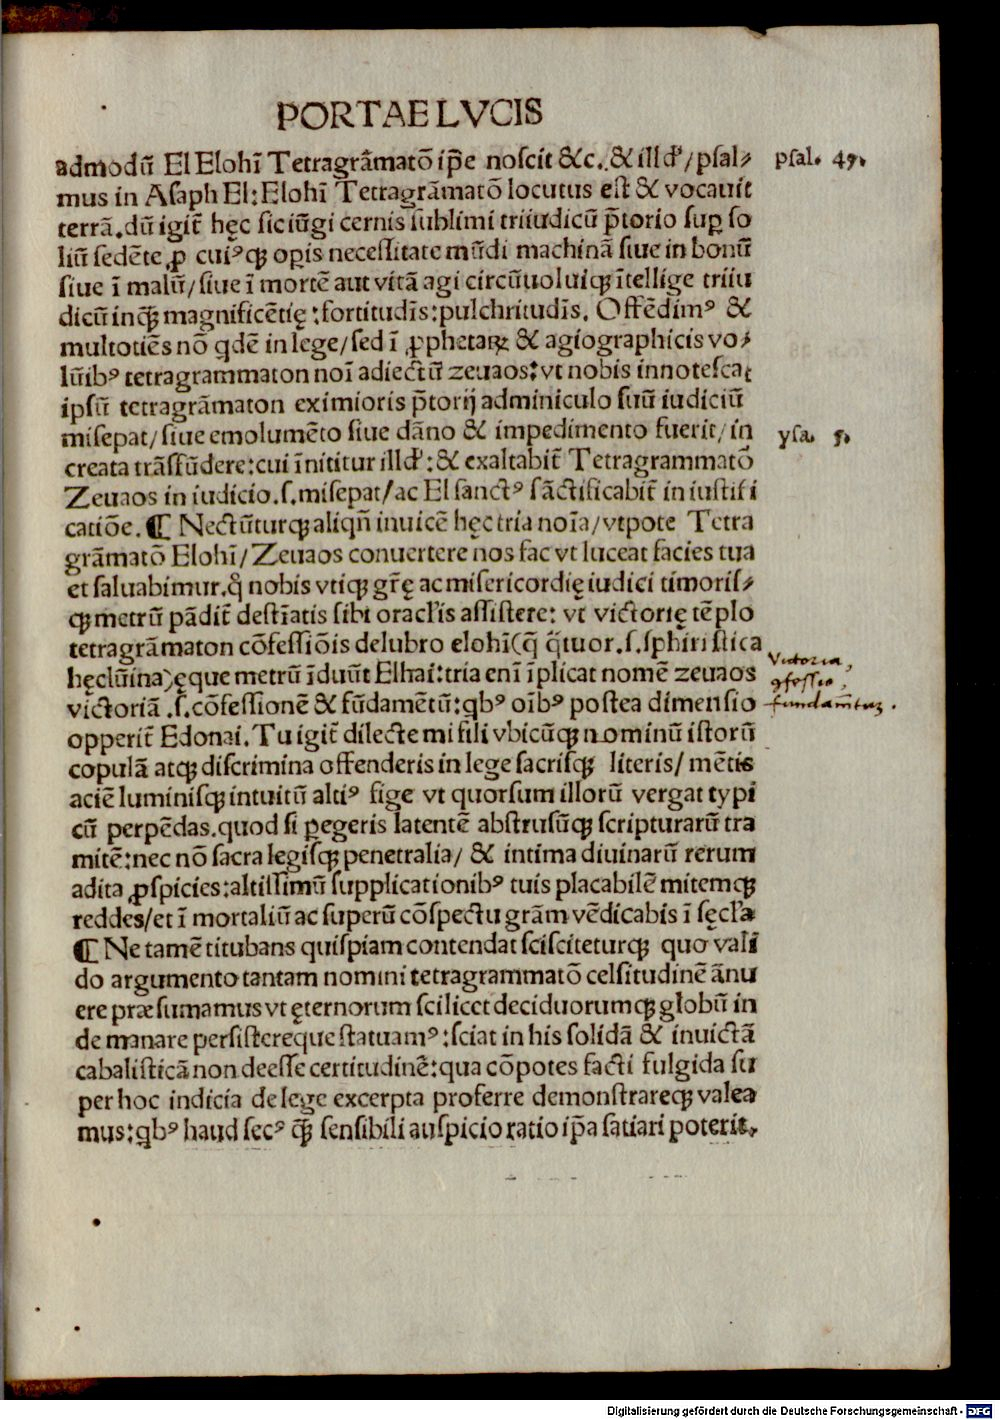 PORTAE LVCIS
admodū El Elohī Tetragrāmatō ip̄e noscit &c. & illđ/psal⸗ psal. 49.
mus in Asaph El: Elohī Tetragrāmatō locutus est & vocauit
terrā. dū igit̄ hęc sic iūgi cernis sublimi triiudicū p̄torio suꝑ so
liū sedēte ꝓ cuiꝰꝙ oꝑis necessitate mūdi machinā siue in bonū
siue ī malū/siue ī mortē aut vitā agi circūuoluiꝙ ītellige triiu
dicū inꝙ̄ magnificētię: fortitudīs: pulchritudīs. Offēdimꝰ &
multotiēs nō qdē in lege/sed ī ꝓphetaꝝ & agiographicis vo⸗
lūibꝰ tetragrammaton noī adiectū zeuaos: vt nobis innotescat
ipsū tetragrāmaton eximioris p̄torij adminiculo suū iudiciū
misepat/siue emolumēto siue dāno & impedimento fuerit/in ysa. 5.
creata trāsfūdere: cui īnititur illđ: & exaltabit̄ Tetragrammatō
Zeuaos in iudicio. s. misepat/ac El sanctꝰ sāctificabit̄ in iustifi
catiōe. ¶ Nectūturꝙ aliqn̄ inuicē hęc tria noīa/vtpote Tetra
grāmatō Elohī/Zeuaos conuertere nos fac vt luceat facies tua
et saluabimur. q̄ nobis vtiꝙ gr̄ę ac misericordię iudici timoris⸗
ꝙ metrū pādit̄ destīatis sibi oracl'is assistere: vt victorię tēplo
tetragrāmaton cōfessiōis delubro elohī (q̄ q̄tuor. s. sphiristica
hęc lūina) ęque metrū īduūt Elhai: tria enī īplicat nomē zeuaos Victoria,
victoriā .s. cōfessionē & fūdamētū: qbꝰ oībꝰ postea dimensio ꝯfessio,
opperit̄ Edonai. Tu igit̄ dilecte mi fili vbicūꝙ nominū istorū fundamētuꝫ.
copulā atꝙ discrimina offenderis in lege sacrisꝙ literis/mētis
aciē luminisꝙ intuitū altiꝰ fige vt quorsum illorū vergat typi
cū perpēdas. quod si ꝑegeris latentē abstrusūꝙ scripturarū tra
mitē: nec nō sacra legisꝙ penetralia/ & intima diuinarū rerum
adita ꝓspicies: altissimū supplicationibꝰ tuis placabilē mitemꝙ
reddes/et ī mortaliū ac superū cōspectu grām vēdicabis ī sęcl'a
¶ Ne tamē titubans quispiam contendat scisciteturꝙ quo valī
do argumento tantam nomini tetragrammatō celsitudinē ānu
ere præsumamus vt ęternorum scilicet deciduorumꝙ globū in
de manare persistereque statuamꝰ: sciat in his solidā & inuictā
cabalisticā non deesse certitudinē: qua cōpotes facti fulgida su
per hoc indicia de lege excerpta proferre demonstrareꝙ valea
mus: qbꝰ haud secꝰ ꝙ̄ sensibili auspicio ratio ip̄a satiari poterit.
Digitalisierung gefördert durch die Deutsche Forschungsgemeinschaft - DFG